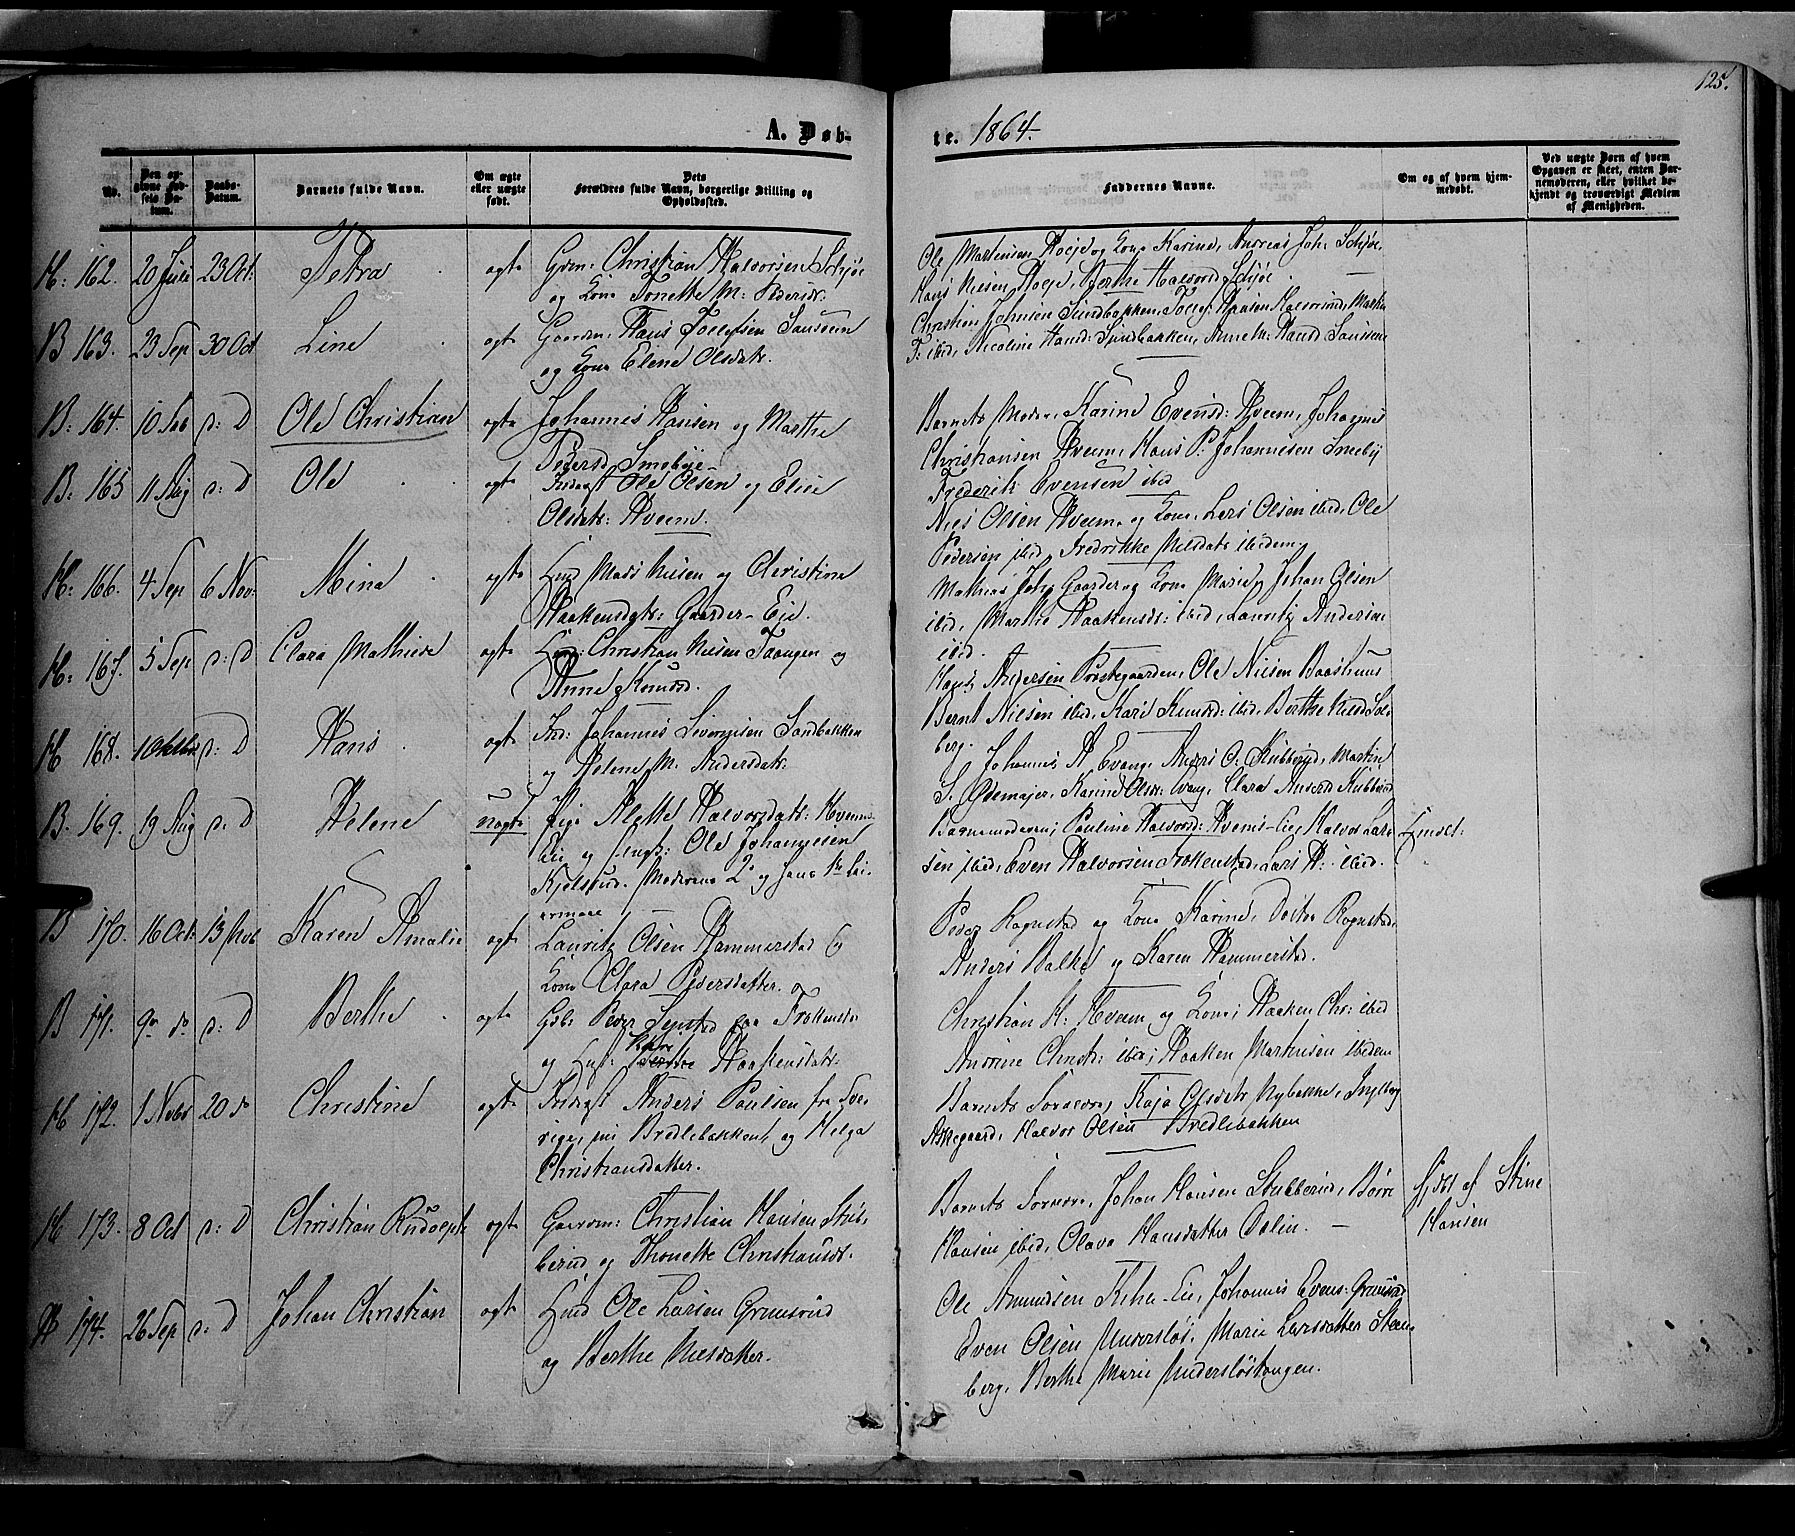 125.
A. Døb-
te. 1864.
No.
Den op-
givne Fød-
sels Da-
tum.
Daabs-
Datum.
Barnets fulde Navn.
Om ægte
eller uægte
født.
Dets
Forældres fulde Navn, borgerlige Stilling og
Opholdssted.
Faddernes Navne.
Om og af hvem hjem-
medøbt.
Ved uægte Børn af hvem
Opgaven er skeet, enten Bar-
nemoderen, eller hvilket be-
kjendt og troværdigt Medlem
af Menigheden.
H: 162. 20 Juli 23 Oct. Petra ægte Grdm: Christian Halvorsen Schjøe
og Kone Tonette M: Pedersdr.
Ole Martinsen Hoeje og Kone Karine, Andreas Joh. Schjøe,
Hans Nilsen Hoeje, Berthe Halvorsd. Schjøe.
B 163. 23 Sep 30 Oct Line ægte Gaardm: Hans Tollefsen Sansten
og Kone Elene Olsdatr.
Christian Johnsen Sundbakken, Tollef Hansen Halsvrind, Marthe
T: ibid, Nicoline Hansd: Sundbakken, Anne M: Hansd
B: 164. 10 Sep d: D Ole Christian ægte Johannes Hansen og Marthe
Pedersd Smebye
Barnets Moder, Karine Evensd: Hveem, Johannes
Christiansen Hveem, Hans P. Johannesen Smeby
Frederik Evensen ibid
B: 165 11 Aug d: D Ole ægte Inderst Ole Olsen og Elise
Olsdatr: Hveem.
Niels Olsen Hveem og Kone, Lars Olsen ibid, Ole
Pedersen ibid, Fredrikke Nilsdatr ibidem
H: 166. 4 Sep 6 Nov. Mina ægte Hmd Mads Nilsen og Christine
Haakensdatr: Gaarder-Eie.
Mathias Joh: Gaarder og Kone Marie, Johan Olsen
ibid, Marthe Haakensdr: ibid, Lauritz Andersen
ibid.
H: 167. 5 Sep d: D Clara Mathilde ægte Hmd: Christian Nilsen Taangen og
Anne Knudsd.
Hans Andersen Præstegaarden, Ole Nilsen Baashuus
Bernt Nilsen ibid, Kari Knudsd: ibid, Berthe Nilsd Sol-
berg.
H 168. 1 Oktober d: D Hans ægte Ind: Johannes Sandbakken
og Helene M. Andersdatr.
Johannes A. Evang, Anders O. Stubberud, Martin
S. Ødemajer, Karine Olsdr: Evang, Clara Andersd Stubberud
B. 169. 19 Aug d: D Helene uægte Pige Alette Halvorsdatr: Hveems-
Eie og Ungk: Ole Johannesen
Kjelsrud. Moderens 2 og hans 1ste Lei-
ermaal
Barnemoderen, Pauline Halvorsd: Hveems-Eie, Halvor Lar-
sen ibid, Even Halvorsen Frøkenstad, Lars H: ibid.
B 170. 16 Oct. 13 Nov Karen Amalie ægte Lauritz Olsen Hammerstad og
Kone Clara Pedersdatter.
Peder Rognstad og Kone Karine, Dortea Rognstad,
Anders Balke og Karen Hammerstad.
B 171. 9 do d: D Berthe ægte Gdb: Peder paa Frøkenstad
og Haakensdatr.
Christian H: Hveem og Kone, Haaken Chr: ibid
Andrine Christs: ibid, Haaken Martinsen ibidem
H 172. 1 Novbr 20 do Christine ægte Inderst Anders Paulsen fra Sve-
rige, nu Bredlebakken, og Helga
Christiansdatter.
Barnets Forældre, Kaja Olsdatr Nybakke,
Askegaard, Halvor Olsen Bredlebakken
H. 173. 8 Oct d: D Christian Rudolph ægte Gaardm: Christian Hansen Stub-
berud og Thonette Christiansdr.
Barnets Forældre, Johan Hansen Stubberud, Børre
Hansen ibid, Olava Hansdatter Dalin.
Hjdbt af Stine
Hansen
H 174. 26 Sep d: D Johan Christian ægte Hmd Ole Larsen Grimsrud
og Berthe Nilsdatter.
Ole Amundsen Kihle-Eie, Johannes Evens: Grimsrud
Even Olsen Nedersløs, Marie Larsdatter Steen-
berg, Berthe Marie